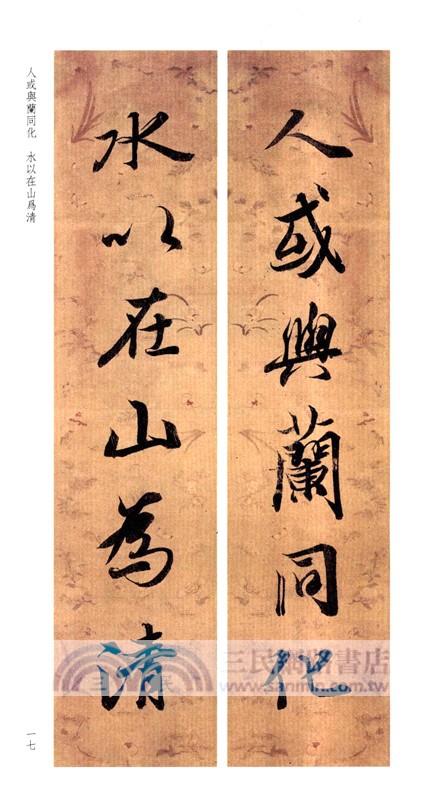 人或與蘭同化
水以在山為清
人或與蘭同化　水以在山爲清
一七
三民網路書店
www.sanmin.com.tw
三民